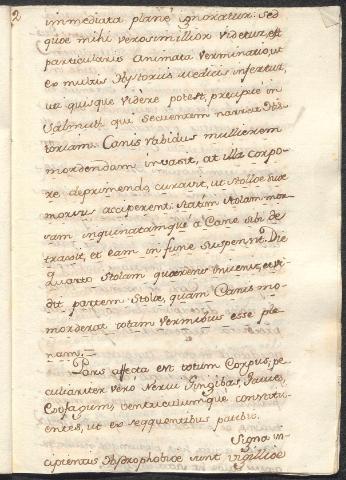 2
immediata planè ignoratur: sed
quae mihi verosimilior videtur, est
particularis animata verminatio, ut
ex multis Hystoriis Medicis infertur,
ut quisque videre potest, precipuè in
Salmuth qui sequentem narrat His-
toriam. Canis rabidus mullierem
mordendam invasit, at illa corpo-
re deprimendo curavit, ut stollae suae
morsus acciperent. Statim stolam mor-
sam inquinatamque à Cane sibi de
traxit, et eam in fune suspensit. Die
quarto stolam quaerens invenit, et vi-
dit partem stolae, quam Canis mo-
morderat totam vermibus esse ple
nam.
Pars affecta est totum Corpus; pe
culiariter verò Nervi Gingibas, fauces,
Esofagum, ventriculumque constitu-
entes, ut ex seqquentibus patebit.
Signa in-
cipientis Hydrophobiae sunt vigilliae